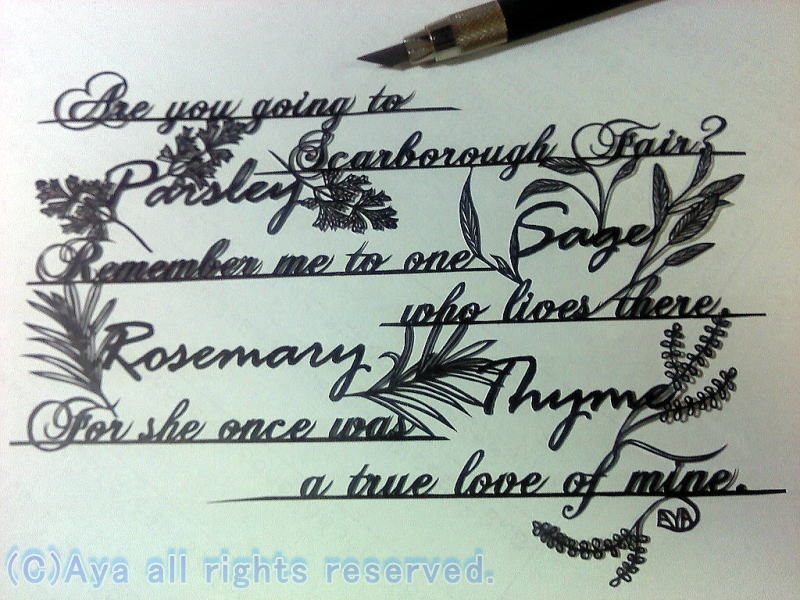 Are you going to
Scarborough Fair?
Parsley
Sage
Remember me to one
who lives there.
Rosemary
Thyme
For she once was
a true love of mine.
(C)Aya all rights reserved.